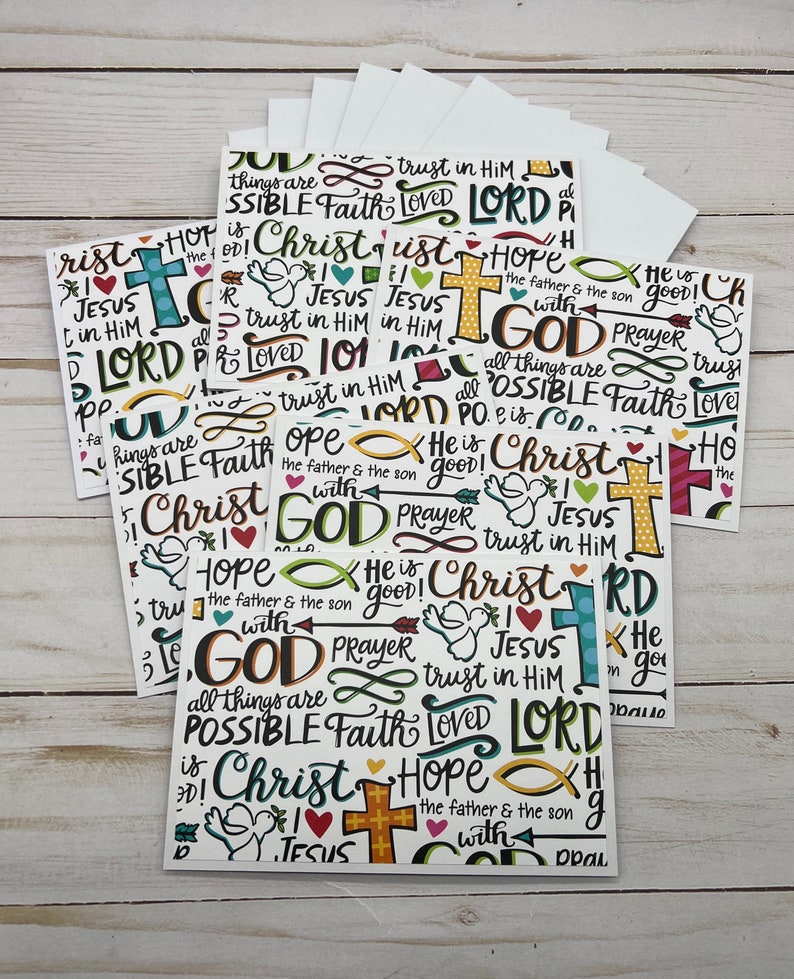 GOD trust in HiM
all things are
POSSIBLE Faith Loved LORD
is
Christ
I
JESUS
trust in HiM
Loved
HOPE
the father & the son
He is
good!
Christ
I
JESUS
with
GOD PRAYER
trust in HiM
all things are
POSSIBLE Faith Loved
is
Christ
HOPE
the
Christ
HOPE
the
I
JESUS
trust in HiM
LORD
all
the father
trust in HiM
things are
SIBLE Faith
LORD
all
Christ
I
trust
He is
good!
the father & the son
Christ
with
GOD PRAYER
I
JESUS
trust in HiM
He is
HOPE
the father & the son
He is
good!
Christ
with
GOD PRAYER
I
JESUS
trust in HiM
all things are
POSSIBLE Faith Loved LORD
is
Christ HOPE
the father & the son
I
JESUS
with
GOD